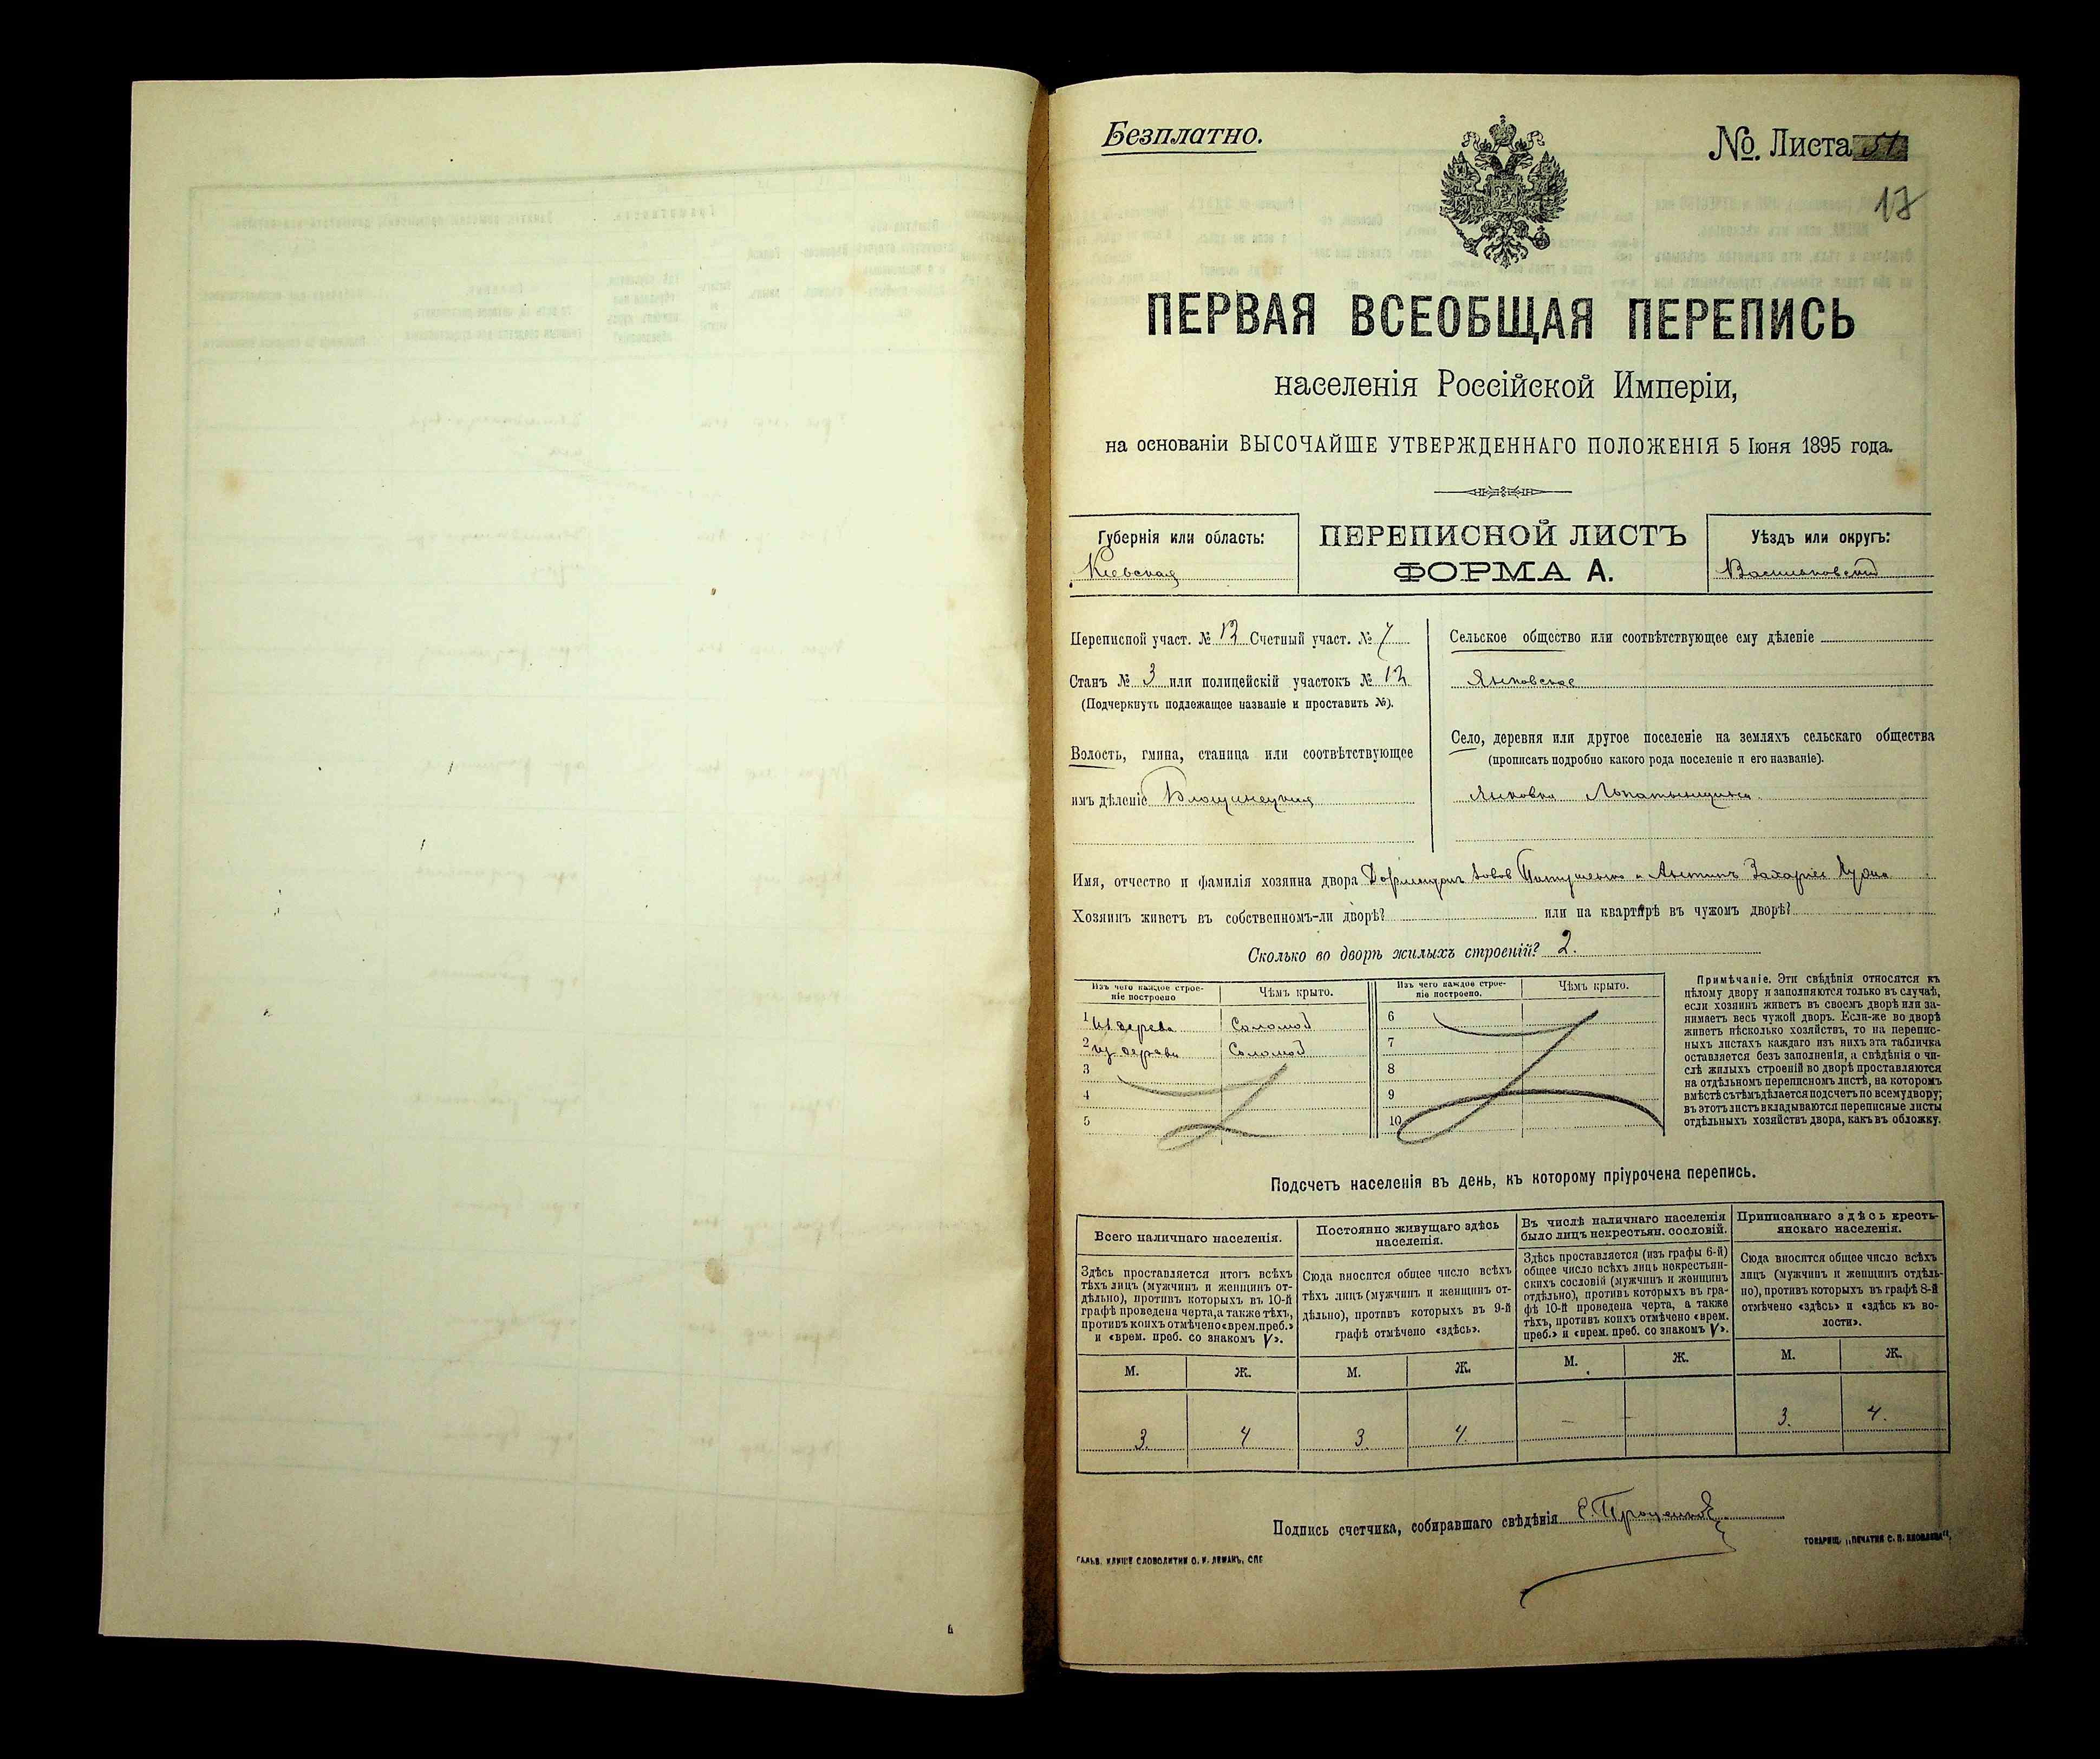 Безплатно.
№. Листа 51.
17
ПЕРВАЯ ВСЕОБЩАЯ ПЕРЕПИСЬ
населенія Россійской Имперіи,
на основаніи ВЫСОЧАЙШЕ УТВЕРЖДЕННАГО ПОЛОЖЕНІЯ 5 Іюня 1895 года.
Губернія или область:
Кіевская
ПЕРЕПИСНОЙ ЛИСТЪ
ФОРМА А.
Уѣздъ или округъ:
Васильковскій
Переписной участ. № 12 Счетный участ. № 7
Станъ № 3 или полицейскій участокъ № 12
(Подчеркнуть подлежащее названіе и проставить №).
Волость, гмина, станица или соотвѣтствующее
имъ дѣленіе Блощинецкая
Сельское общество или соотвѣтствующее ему дѣленіе
Янковское
Село, деревня или другое поселеніе на земляхъ сельскаго общества
(прописать подробно какого рода поселеніе и его названіе).
Янковка
Имя, отчество и фамилія хозяина двора и Антинъ Захаріев
Хозяинъ живетъ въ собственномъ-ли дворѣ? или на квартирѣ въ чужомъ дворѣ?
Сколько во дворѣ жилыхъ строеній? 2.
Изъ чего каждое строе-
ніе построено
Чѣмъ крыто.
Изъ чего каждое строе-
ніе построено.
Чѣмъ крыто.
1 из дерева Соломой 6
2 из дерева Соломой 7
3 8
4 9
5 10
Примѣчаніе. Эти свѣдѣнія относятся къ
цѣлому двору и заполняются только въ случаѣ,
если хозяинъ живетъ въ своемъ дворѣ или за-
нимаетъ весь чужой дворъ. Если-же во дворѣ
живетъ нѣсколько хозяйствъ, то на перепис-
ныхъ листахъ каждаго изъ нихъ эта табличка
оставляется безъ заполненія, а свѣдѣнія о чи-
слѣ жилыхъ строеній во дворѣ проставляются
на отдѣльномъ переписномъ листѣ, на которомъ
вмѣстѣ съ тѣмъ дѣлается подсчетъ по всему двору;
въ этотъ листъ вкладываются переписные листы
отдѣльныхъ хозяйствъ двора, какъ въ обложку.
Подсчетъ населенія въ день, къ которому пріурочена перепись.
Всего наличнаго населенія.
Здѣсь проставляется итогъ всѣхъ
тѣхъ лицъ (мужчинъ и женщинъ от-
дѣльно), противъ которыхъ въ 10-й
графѣ проведена черта, а также тѣхъ,
противъ коихъ отмѣчено «врем. преб.»
и «врем. преб. со знакомъ V».
Постоянно живущаго здѣсь
населенія.
Сюда вносится общее число всѣхъ
тѣхъ лицъ (мужчинъ и женщинъ от-
дѣльно), противъ которыхъ въ 9-й
графѣ отмѣчено «здѣсь».
Въ числѣ наличнаго населенія
было лицъ некрестьян. сословій.
Здѣсь проставляется (изъ графы 6-й)
общее число всѣхъ лицъ некрестьян-
скихъ сословій (мужчинъ и женщинъ
отдѣльно), противъ которыхъ въ гра-
фѣ 10-й проведена черта, а также
тѣхъ, противъ коихъ отмѣчено «врем.
преб.» и «врем. преб. со знакомъ V».
Приписаннаго здѣсь кресть-
янскаго населенія.
Сюда вносится общее число всѣхъ
лицъ (мужчинъ и женщинъ отдѣль-
но), противъ которыхъ въ графѣ 8-й
отмѣчено «здѣсь» и «здѣсь къ во-
лости».
М. Ж. М. Ж. М. Ж. М. Ж.
3. 4 3. 4. — — 3. 4.
Подпись счетчика, собиравшаго свѣдѣнія Е. Проценко
ГАЛЬВ. КЛИШЕ СЛОВОЛИТНИ О. И. ЛЕМАНЪ, СПБ
ТОВАРИЩ. „ПЕЧАТНЯ С. П. ЯКОВЛЕВА".